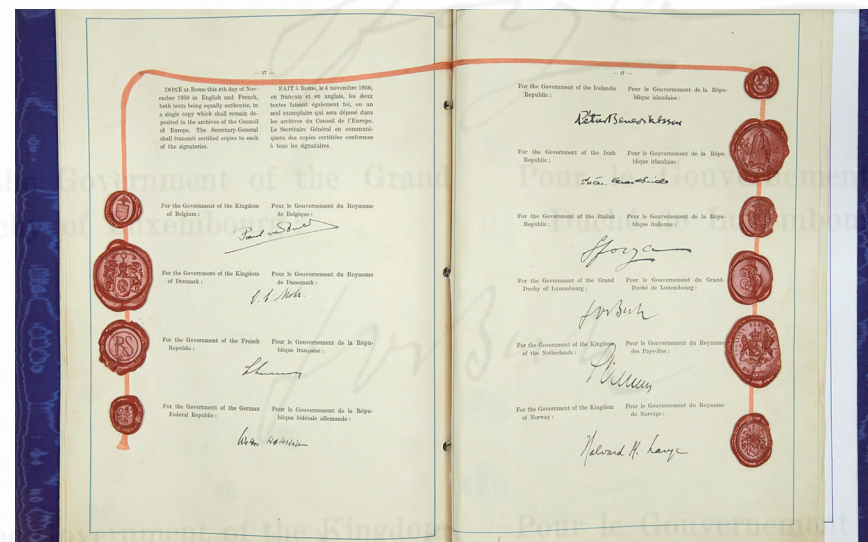 — 17 —
DONE at Rome this 4th day of Nov-
ember 1950 in English and French,
both texts being equally authentic, in
a single copy which shall remain de-
posited in the archives of the Council
of Europe. The Secretary-General
shall transmit certified copies to each
of the signatories.
FAIT à Rome, le 4 novembre 1950,
en français et en anglais, les deux
textes faisant également foi, en un
seul exemplaire qui sera déposé dans
les archives du Conseil de l'Europe.
Le Secrétaire Général en communi-
quera des copies certifiées conformes
à tous les signataires.
For the Government of the Kingdom
of Belgium :
Pour le Gouvernement du Royaume
de Belgique :
For the Government of the Kingdom
of Denmark :
Pour le Gouvernement du Royaume
de Danemark :
O. C. Mohr.
For the Government of the French
Republic :
Pour le Gouvernement de la Répu-
blique française :
For the Government of the German
Federal Republic :
Pour le Gouvernement de la Répu-
blique fédérale allemande :
— 17 —
For the Government of the Icelandic
Republic :
Pour le Gouvernement de la Répu-
blique islandaise :
For the Government of the Irish
Republic :
Pour le Gouvernement de la Répu-
blique irlandaise :
For the Government of the Italian
Republic :
Pour le Gouvernement de la Répu-
blique italienne :
Sforza
For the Government of the Grand
Duchy of Luxembourg :
Pour le Gouvernement du Grand-
Duché de Luxembourg :
Jos Bech
For the Government of the Kingdom
of the Netherlands :
Pour le Gouvernement du Royaume
des Pays-Bas :
For the Government of the Kingdom
of Norway :
Pour le Gouvernement du Royaume
de Norvège :
Halvard M. Lange